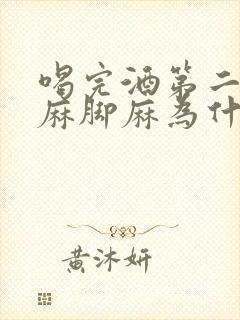 喝完酒第二
麻脚麻为什
黄沐妍